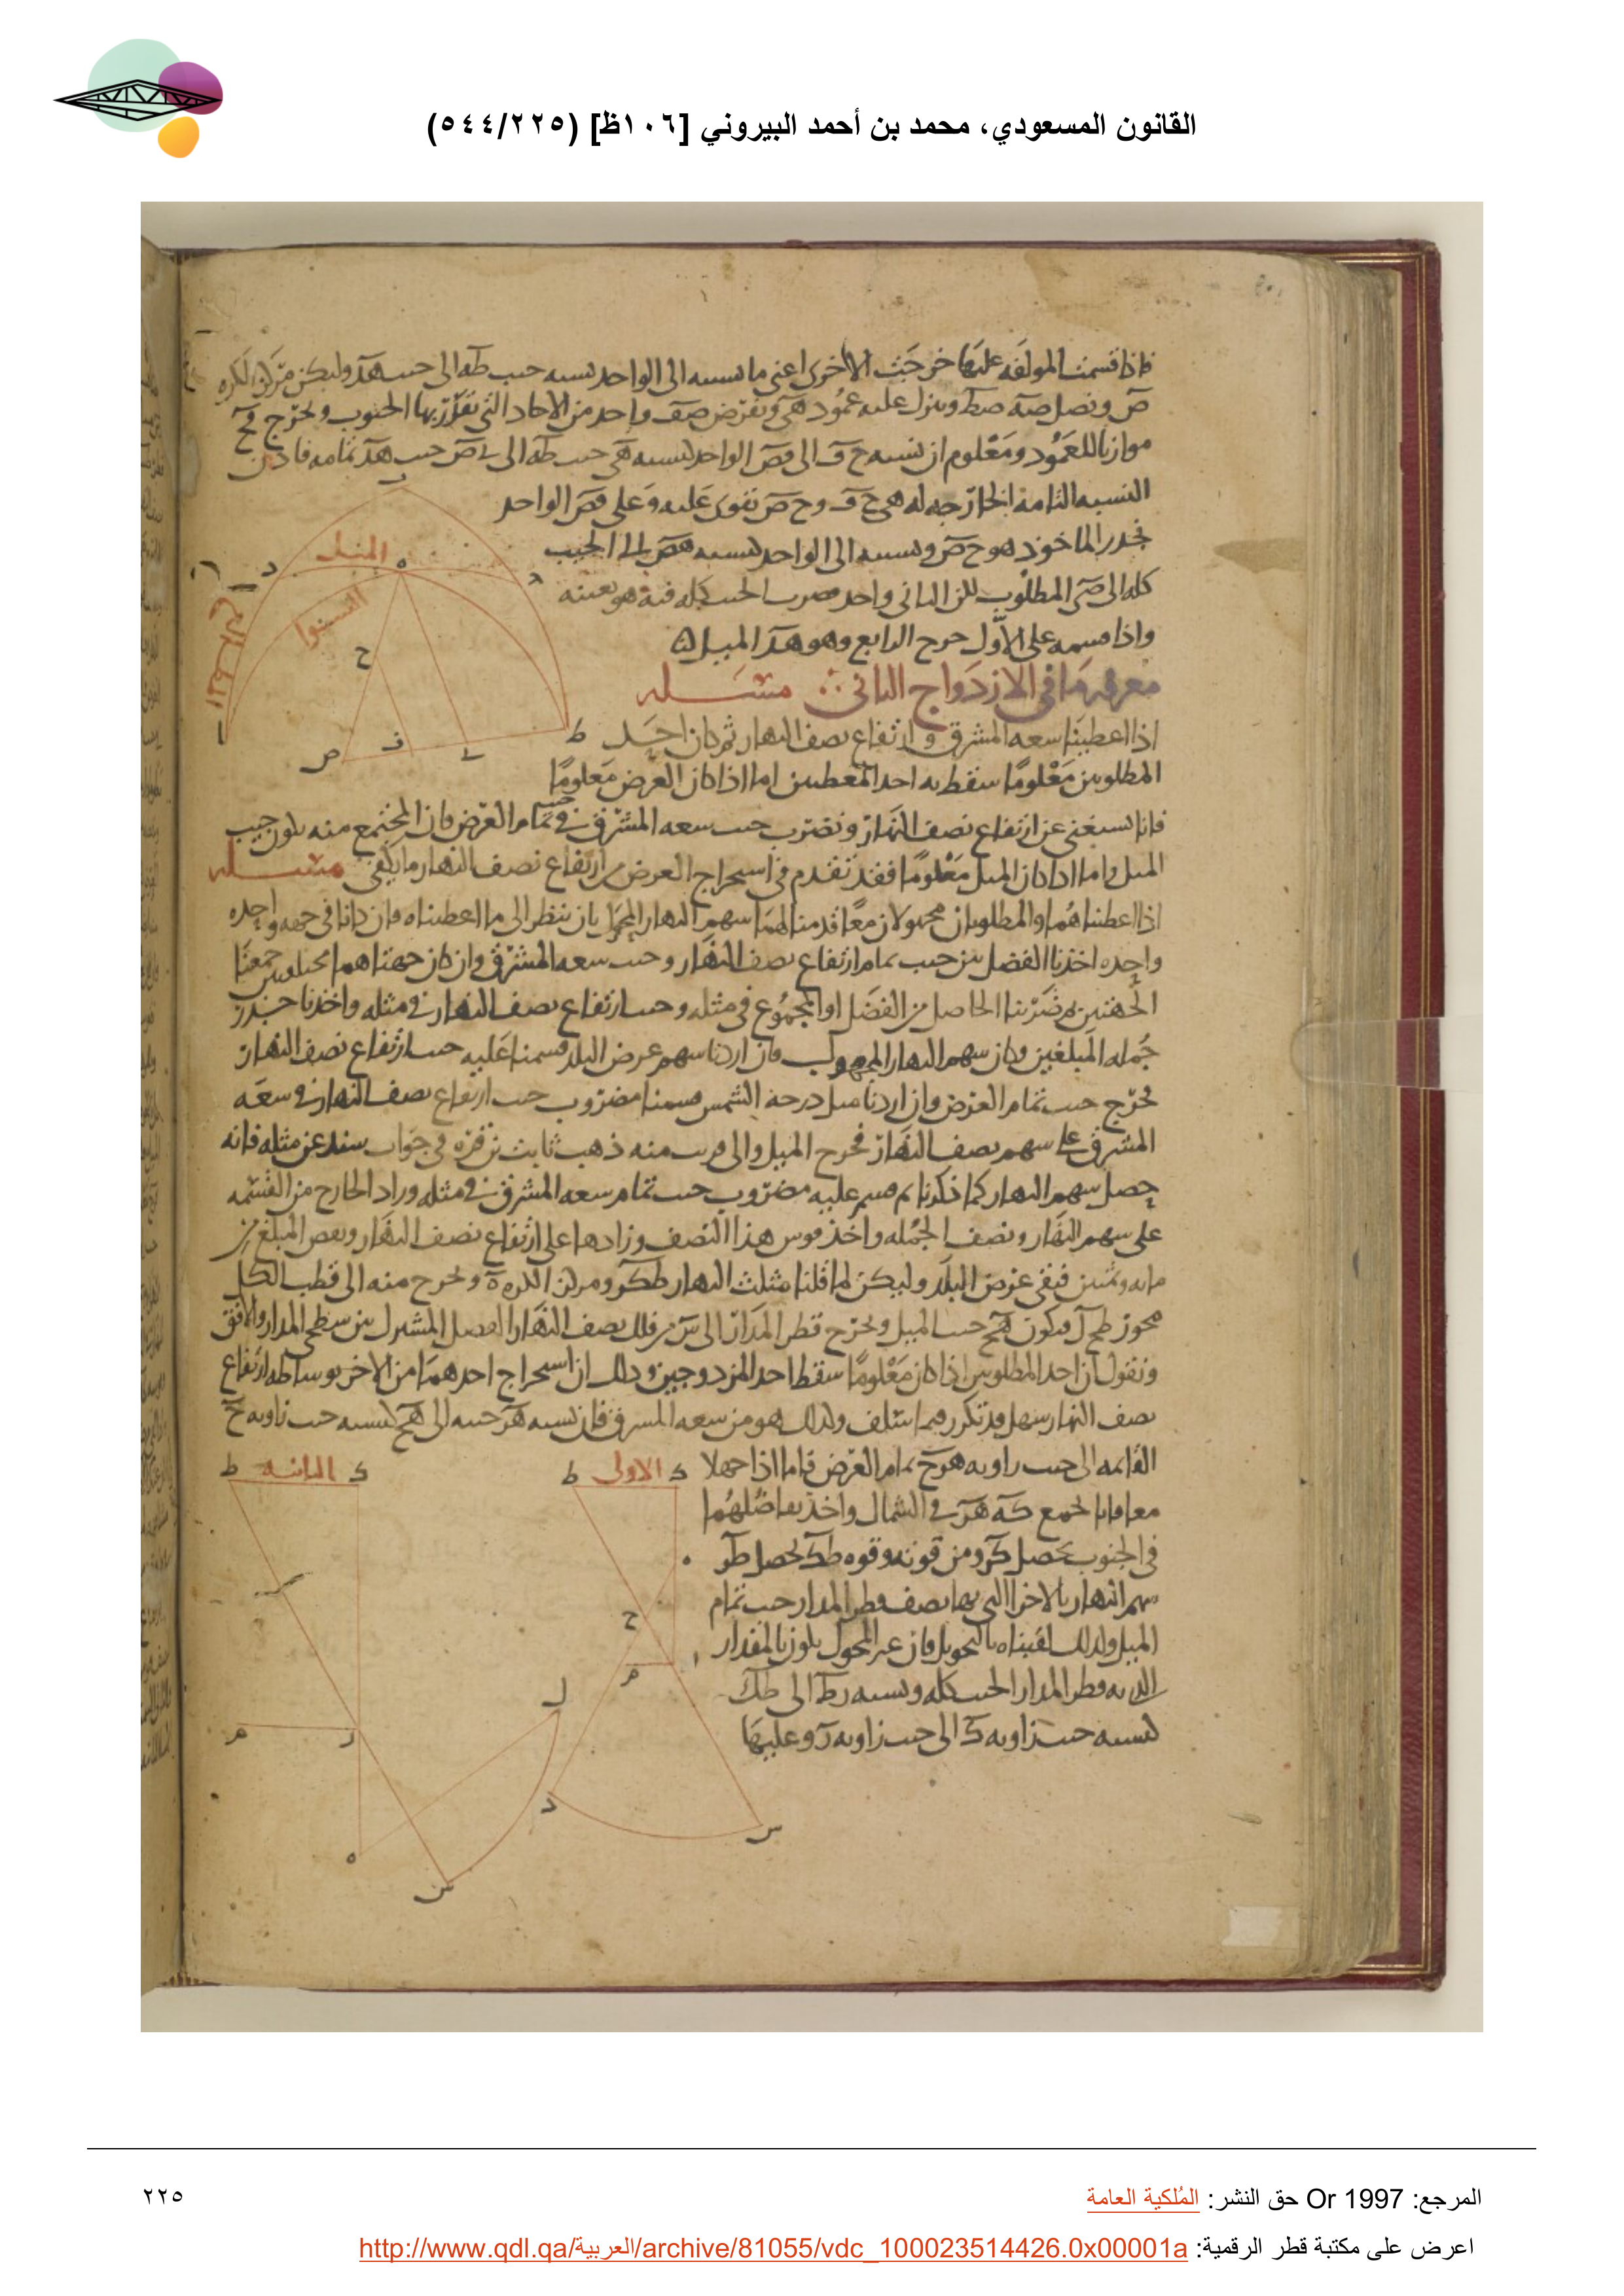 القانون المسعودي، محمد بن أحمد البيروني [١٠٦ظ] (٥٤٤/٢٢٥)
فاذا قسمنا المولفه عليها خرجت الاخرى اعنى ما نسبته الى الواحد كنسبه جيب طه الى جيب هد وليكن مركز الكره
ص ونصل صه صط وينزل عليه عمود هى ونفرض صف واحد من الاحاد التى تقدر بها الجيوب ونخرج فح
موازيا للعمود ومعلوم ان نسبه ح ف الى فص الواحد كنسبه هى جيب طه الى ى ص جيب هد تمامه فاذن
النسبه الثامنه الخارجه له هى ح ف و ح ص تقوى عليه وعلى فص الواحد
فجذر الماخوذ هو ح ص ونسبته الى الواحد كنسبه هص الجيب
كله الى صى المطلوب لكن الثانى واحد فضرب الجيب كله فيه هو بعينه
واذا قسمه على الاول خرج الرابع وهو هد الميل
الميل
السوا
معرفه ما فى الازدواج الثانى مسله
اذا اعطينا سعه المشرق وارتفاع نصف النهار ثم كان احد
المطلوبين معلوما سقط به احد المعطيين اما اذا كان العرض معلوما
فانا نستغنى عن ارتفاع نصف النهار ونضرب جيب سعه المشرق فى جيب تمام العرض فان المجتمع منه يكون جيب
الميل واما اذا كان الميل معلوما فقد تقدم فى استخراج العرض من ارتفاع نصف النهار ما يكفى مسله
اذا اعطيناهما والمطلوبان مجهولان معا قدمنا لهما سهم النهار المحول بان ننظر الى ما اعطيناه فان كانا فى جهه واحده
واحده اخذنا الفضل بين جيب تمام ارتفاع نصف النهار وجيب سعه المشرق وان كان جهتاهما مختلفتين جمعنا
الجهتين ثم ضربنا الحاصل من الفضل او المجموع فى مثله وجيب ارتفاع نصف النهار فى مثله واخذنا جذر
جمله المبلغين وكان سهم النهار المجهول فان اردنا سهم عرض البلد قسمنا عليه جيب ارتفاع نصف النهار
فخرج جيب تمام العرض وان اردنا ميل درجه الشمس قسمنا مضروب جيب ارتفاع نصف النهار فى سعه
المشرق على سهم نصف النهار فخرج الميل والى قريب منه ذهب ثابت بن قره فى جواب سند عن مثله فانه
حصل سهم النهار كما ذكرنا ثم قسم عليه مضروب جيب تمام سعه المشرق فى مثله وزاد الخارج من القسمه
على سهم النهار ونصف الجمله واخذ قوس هذا النصف وزادها على ارتفاع نصف النهار ونقص المبلغ من
مايه وثمنين فبقى عرض البلد وليكن لما قلنا مثلث النهار طكر ومركز الكره ه ونخرج منه الى قطب الكل
محور طح ل فيكون هح جيب الميل ونخرج قطر المدار الى س من فلك نصف النهار الفصل المشترك بين سطحى المدار والافق
ونقول ان احد المطلوبين اذا كان معلوما سقط احد المزدوجين وذلك ان استخراج احدهما من الاخر بوساطه ارتفاع
نصف النهار سهل قد تكرر فيما استلف وكذلك هو من سعه المشرق فان نسبه هر جيبه الى هح كنسبه جيب زاويه ح
القايمه الى جيب زاويه هرح تمام العرض فاما اذا جهلا
معا فانا نجمع كه هر فى الشمال وناخذ تفاضلهما
فى الجنوب يحصل كر ومن قوته وقوه طك يحصل طر
سهم النهار بالاجزا التى بها نصف قطر المدار جيب تمام
الميل ولذلك لقبناه بالتحويل فان غير المحول يكون بالمقدار
الذى به قطر المدار الجيب كله ونسبه رط الى طك
كنسبه جيب زاويه ك الى جيب زاويه ر وعليها
الاولى
الثانيه
المرجع: Or 1997 حق النشر: المُلكية العامة
٢٢٥
اعرض على مكتبة قطر الرقمية: http://www.qdl.qa/العربية/archive/81055/vdc_100023514426.0x00001a